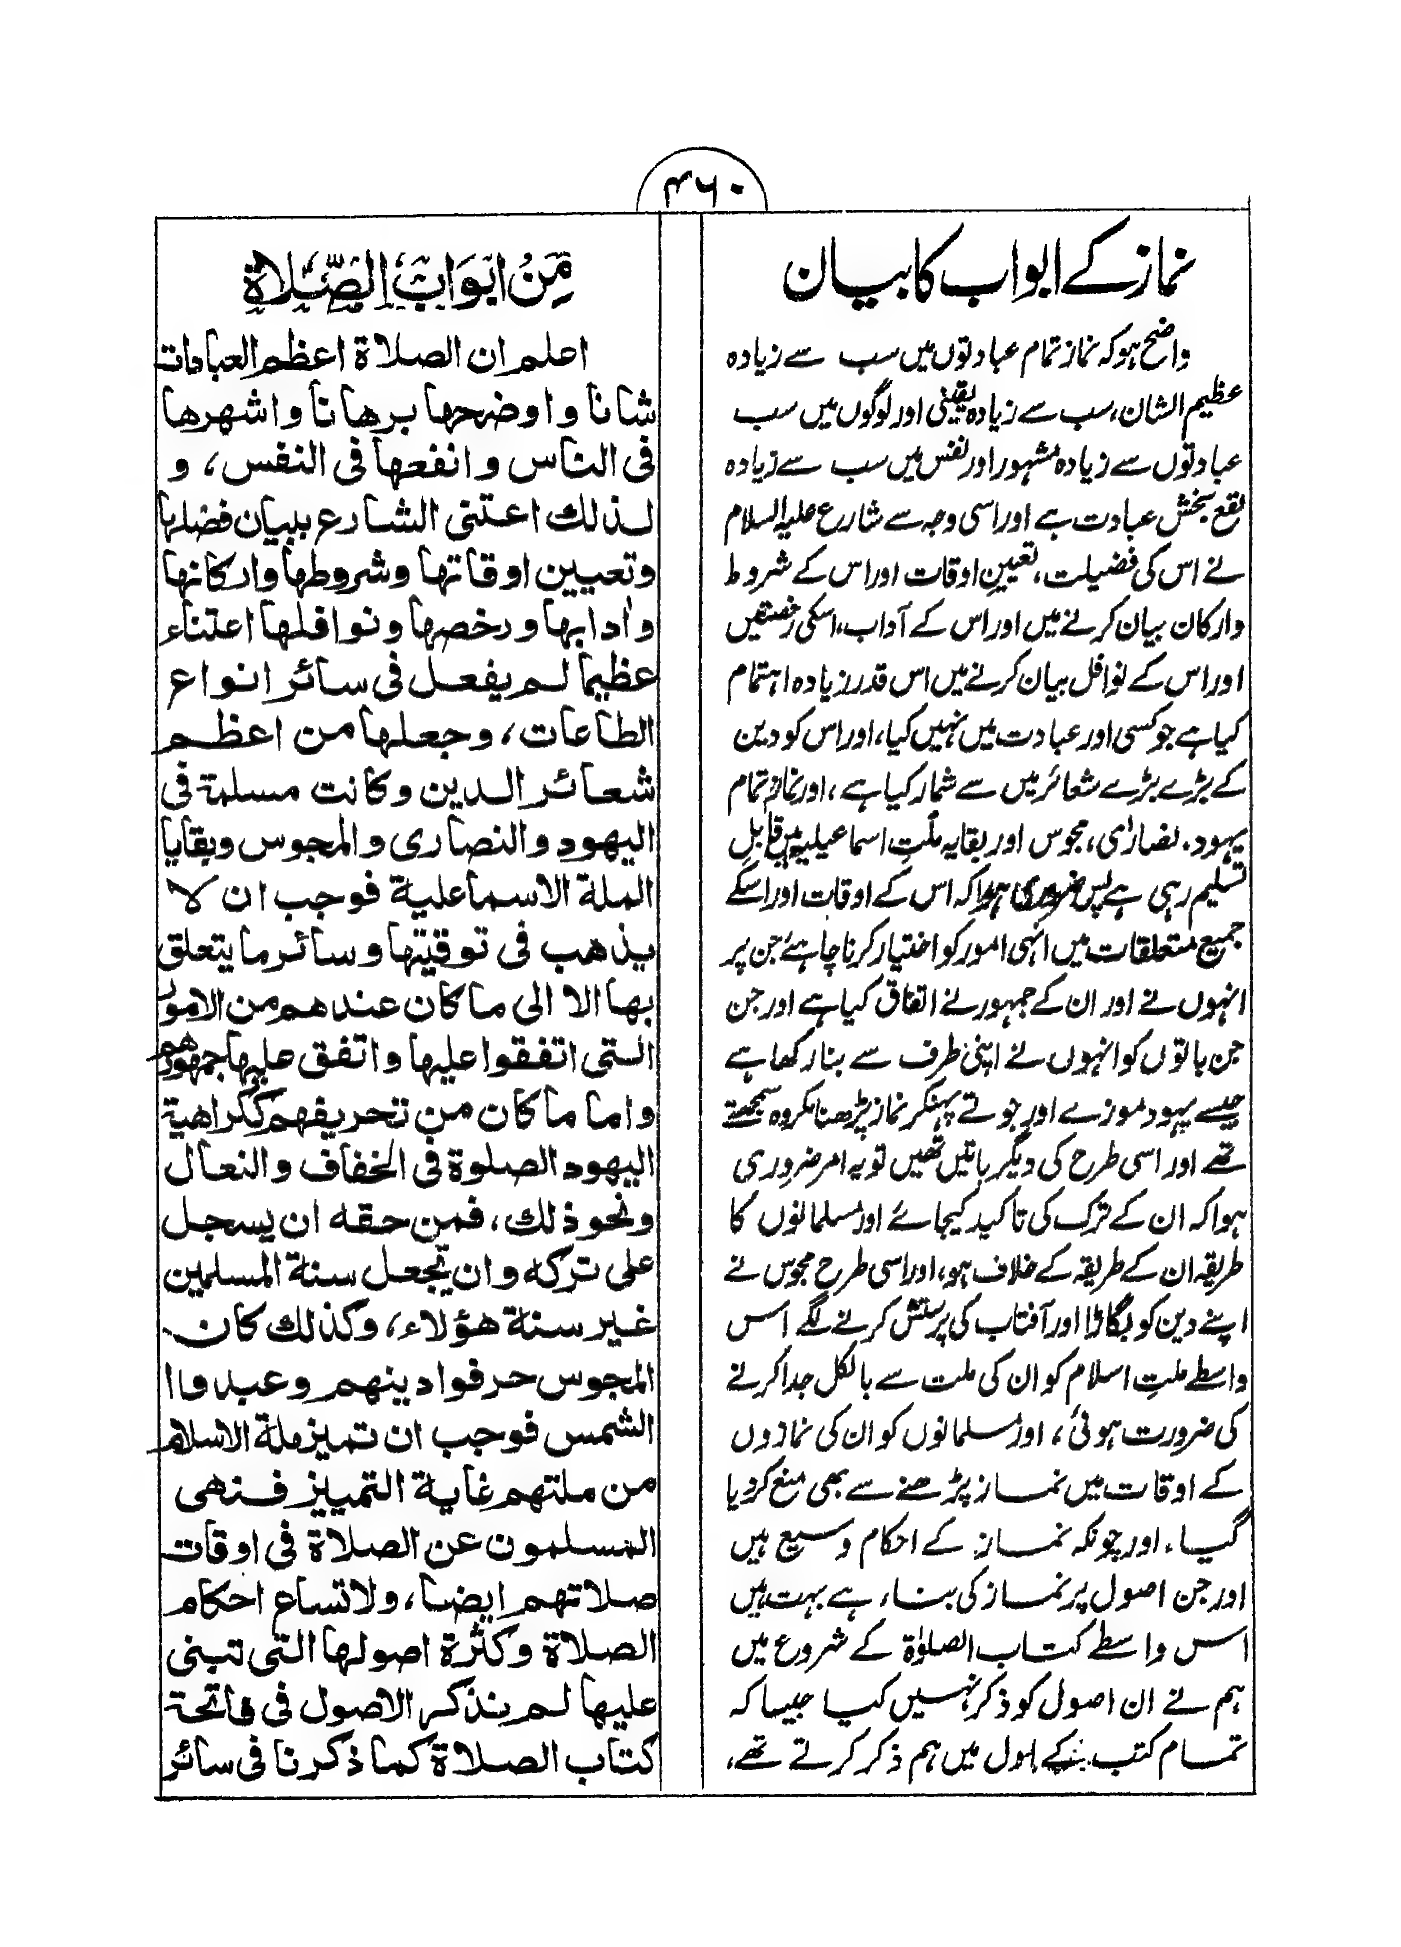 ۴۶۰
نماز کے ابواب کا بیان
واضح ہو کہ نماز تمام عبادتوں میں سب سے زیادہ
عظیم الشان، سب سے زیادہ یقینی اور لوگوں میں سب
عبادتوں سے زیادہ مشہور اور نفس میں سب سے زیادہ
نفع بخش عبادت ہے اور اسی وجہ سے شارع علیہ السلام
نے اس کی فضیلت، تعیینِ اوقات اور اس کے شروط
وارکان بیان کرنے میں اور اس کے آداب، اسکی رخصتیں
اور اس کے نوافل بیان کرنے میں اس قدر زیادہ اہتمام
کیا ہے جو کسی اور عبادت میں نہیں کیا، اور اس کو دین
کے بڑے بڑے شعائر میں سے شمار کیا ہے، اور نماز تمام
یہود. نصارٰی، مجوس اور بقایہ ملّتِ اسماعیلیہ میں قابلِ
تسلیم رہی ہے پس ضروری ہوا کہ اس کے اوقات اور اسکے
جمیع متعلقات میں انہی امور کو اختیار کرنا چاہئے جن پر
انہوں نے اور ان کے جمہور نے اتفاق کیا ہے اور جن
جن باتوں کو انہوں نے اپنی طرف سے بنا رکھا ہے
جیسے یہود موزے اور جوتے پہنکر نماز پڑھنا مکروہ سمجھتے
تھے اور اسی طرح کی دیگر باتیں تھیں تو یہ امر ضروری
ہوا کہ ان کے ترک کی تاکید کیجائے اور مسلمانوں کا
طریقہ ان کے طریقہ کے خلاف ہو، اور اسی طرح مجوس نے
اپنے دین کو بگاڑا اور آفتاب کی پرستش کرنے لگے اس
واسطے ملتِ اسلام کو ان کی ملت سے بالکل جدا کرنے
کی ضرورت ہوئی، اور مسلمانوں کو ان کی نمازوں
کے اوقات میں نماز پڑھنے سے بھی منع کر دیا
گیا، اور چونکہ نماز کے احکام وسیع ہیں
اور جن اصول پر نماز کی بناء ہے بہت ہیں
اس واسطے کتاب الصلوٰۃ کے شروع میں
ہم نے ان اصول کو ذکر نہیں کیا جیسا کہ
تمام کتب کے اول میں ہم ذکر کرتے تھے،
مِنْ اَبْوَابِ الصَّلَاةِ
اعلم ان الصلاة اعظم العبادات
شانا واوضحها برهانا واشهرها
فى الناس وانفعها فى النفس، و
لذلك اعتنى الشارع ببيان فضلها
وتعيين اوقاتها وشروطها واركانها
واٰدابها ورخصها ونوافلها اعتناء
عظيما لم يفعل فى سائر انواع
الطاعات، وجعلها من اعظم
شعائر الدين وكانت مسلمة فى
اليهود والنصارى والمجوس وبقايا
الملة الاسماعلية فوجب ان لا
يذهب فى توقيتها وسائر ما يتعلق
بها الا الى ما كان عندهم من الامور
التى اتفقوا عليها واتفق عليها جمهورهم
واما ما كان من تحريفهم ككراهية
اليهود الصلوة فى الخفاف والنعال
ونحو ذلك، فمن حقه ان يسجل
على تركه وان تجعل سنة المسلمين
غير سنة هؤلاء، وكذلك كان
المجوس حرفوا دينهم وعبدوا
الشمس فوجب ان تميز ملة الاسلام
من ملتهم غاية التمييز فنهى
المسلمون عن الصلاة فى اوقات
صلاتهم ايضا، ولاتساع احكام
الصلاة وكثرة اصولها التى تبنى
عليها لم نذكر الاصول فى فاتحة
كتاب الصلاة كما ذكرنا فى سائر